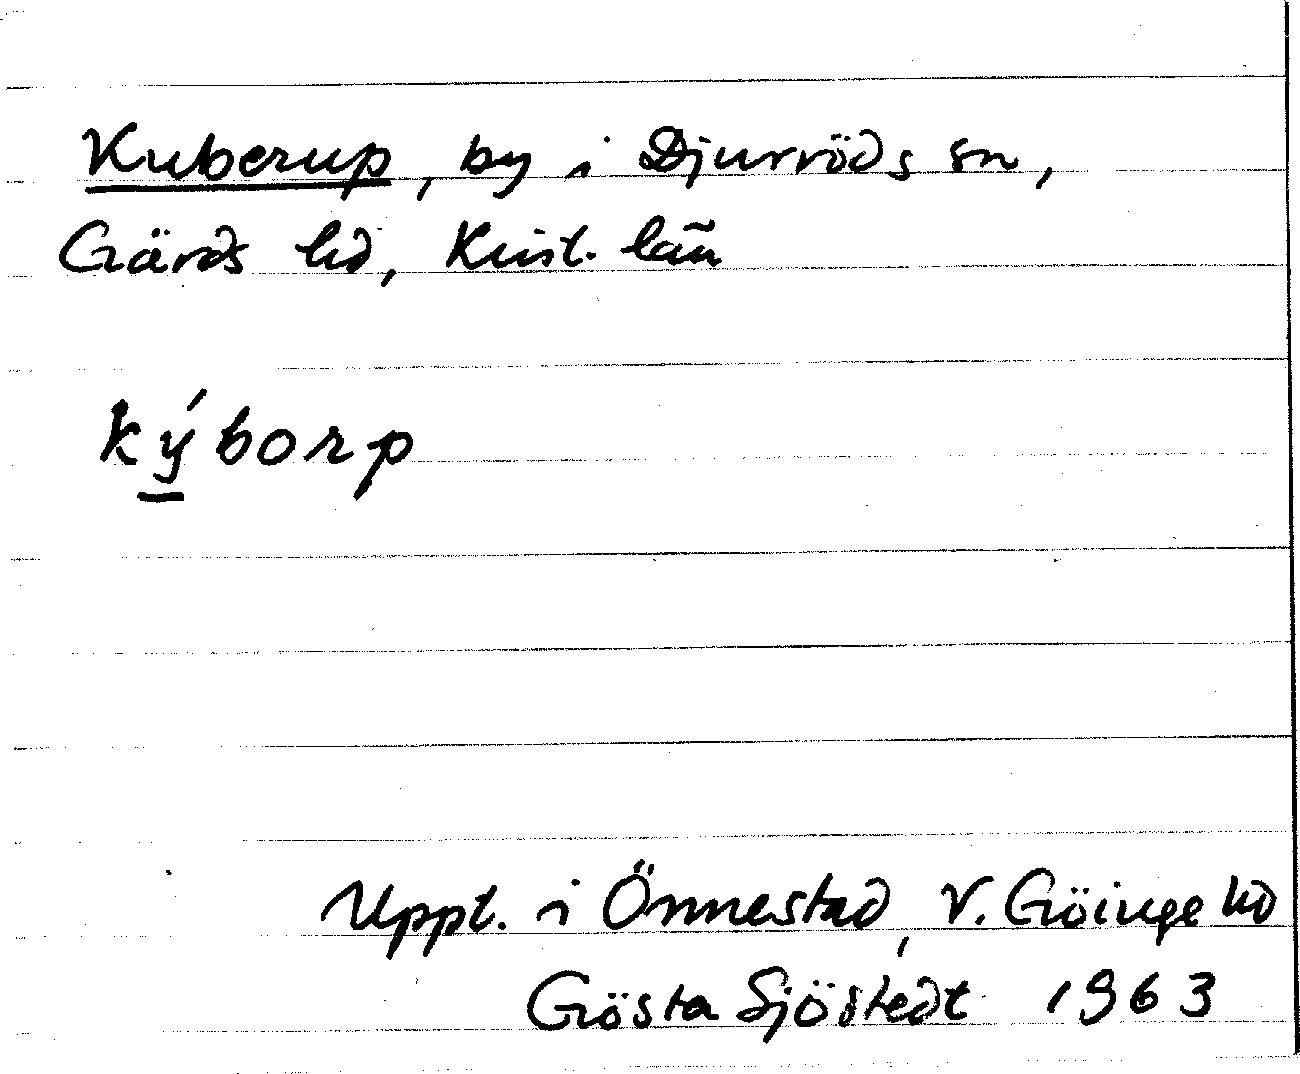 Kuberup, by i Djurröds sn,
Gärds hd, Krist. län
kýborp
Uppt. i Önnestad, V. Göinge hd
Gösta Sjöstedt 1963